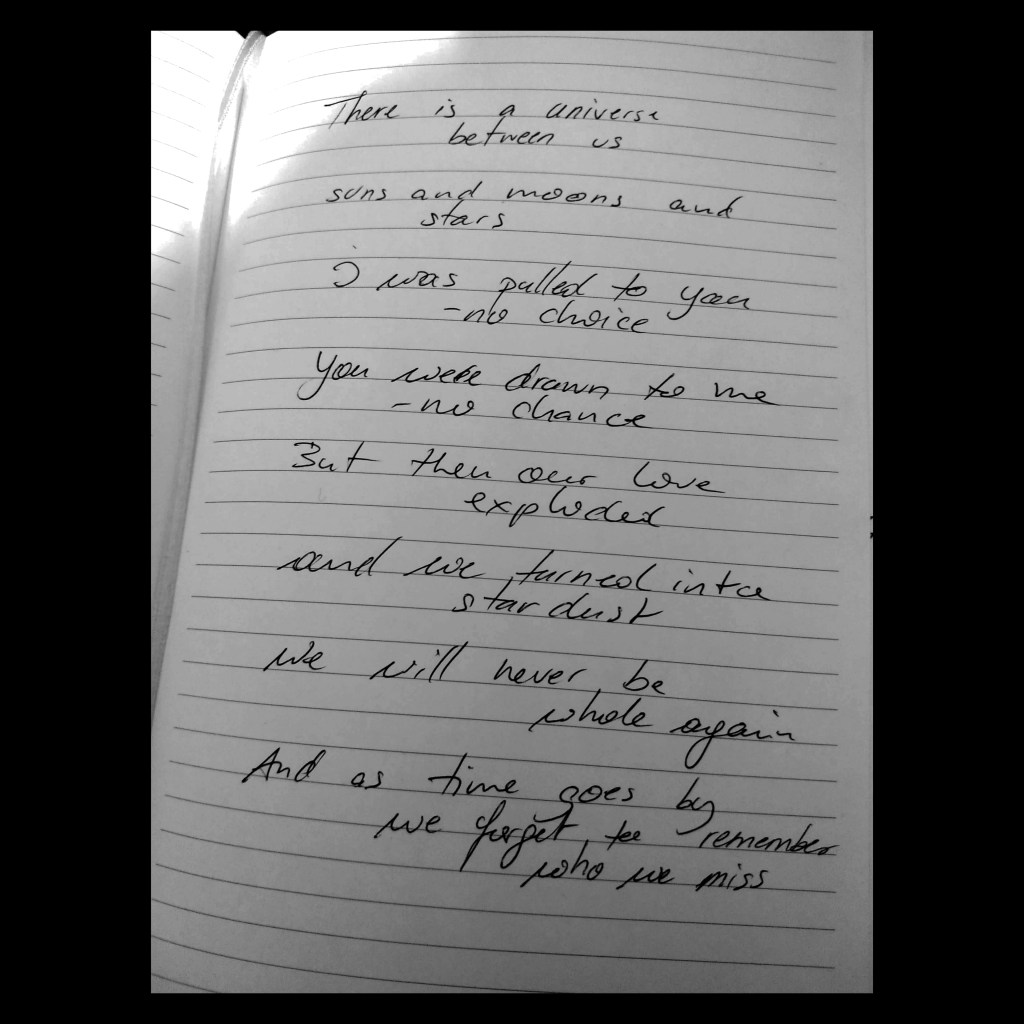 There is a universe
between us
suns and moons and
stars
I was pulled to you
-no choice
You were drawn to me
-no chance
But then our love
exploded
and we turned into
stardust
We will never be
whole again
And as time goes by
we forget to remember
who we miss